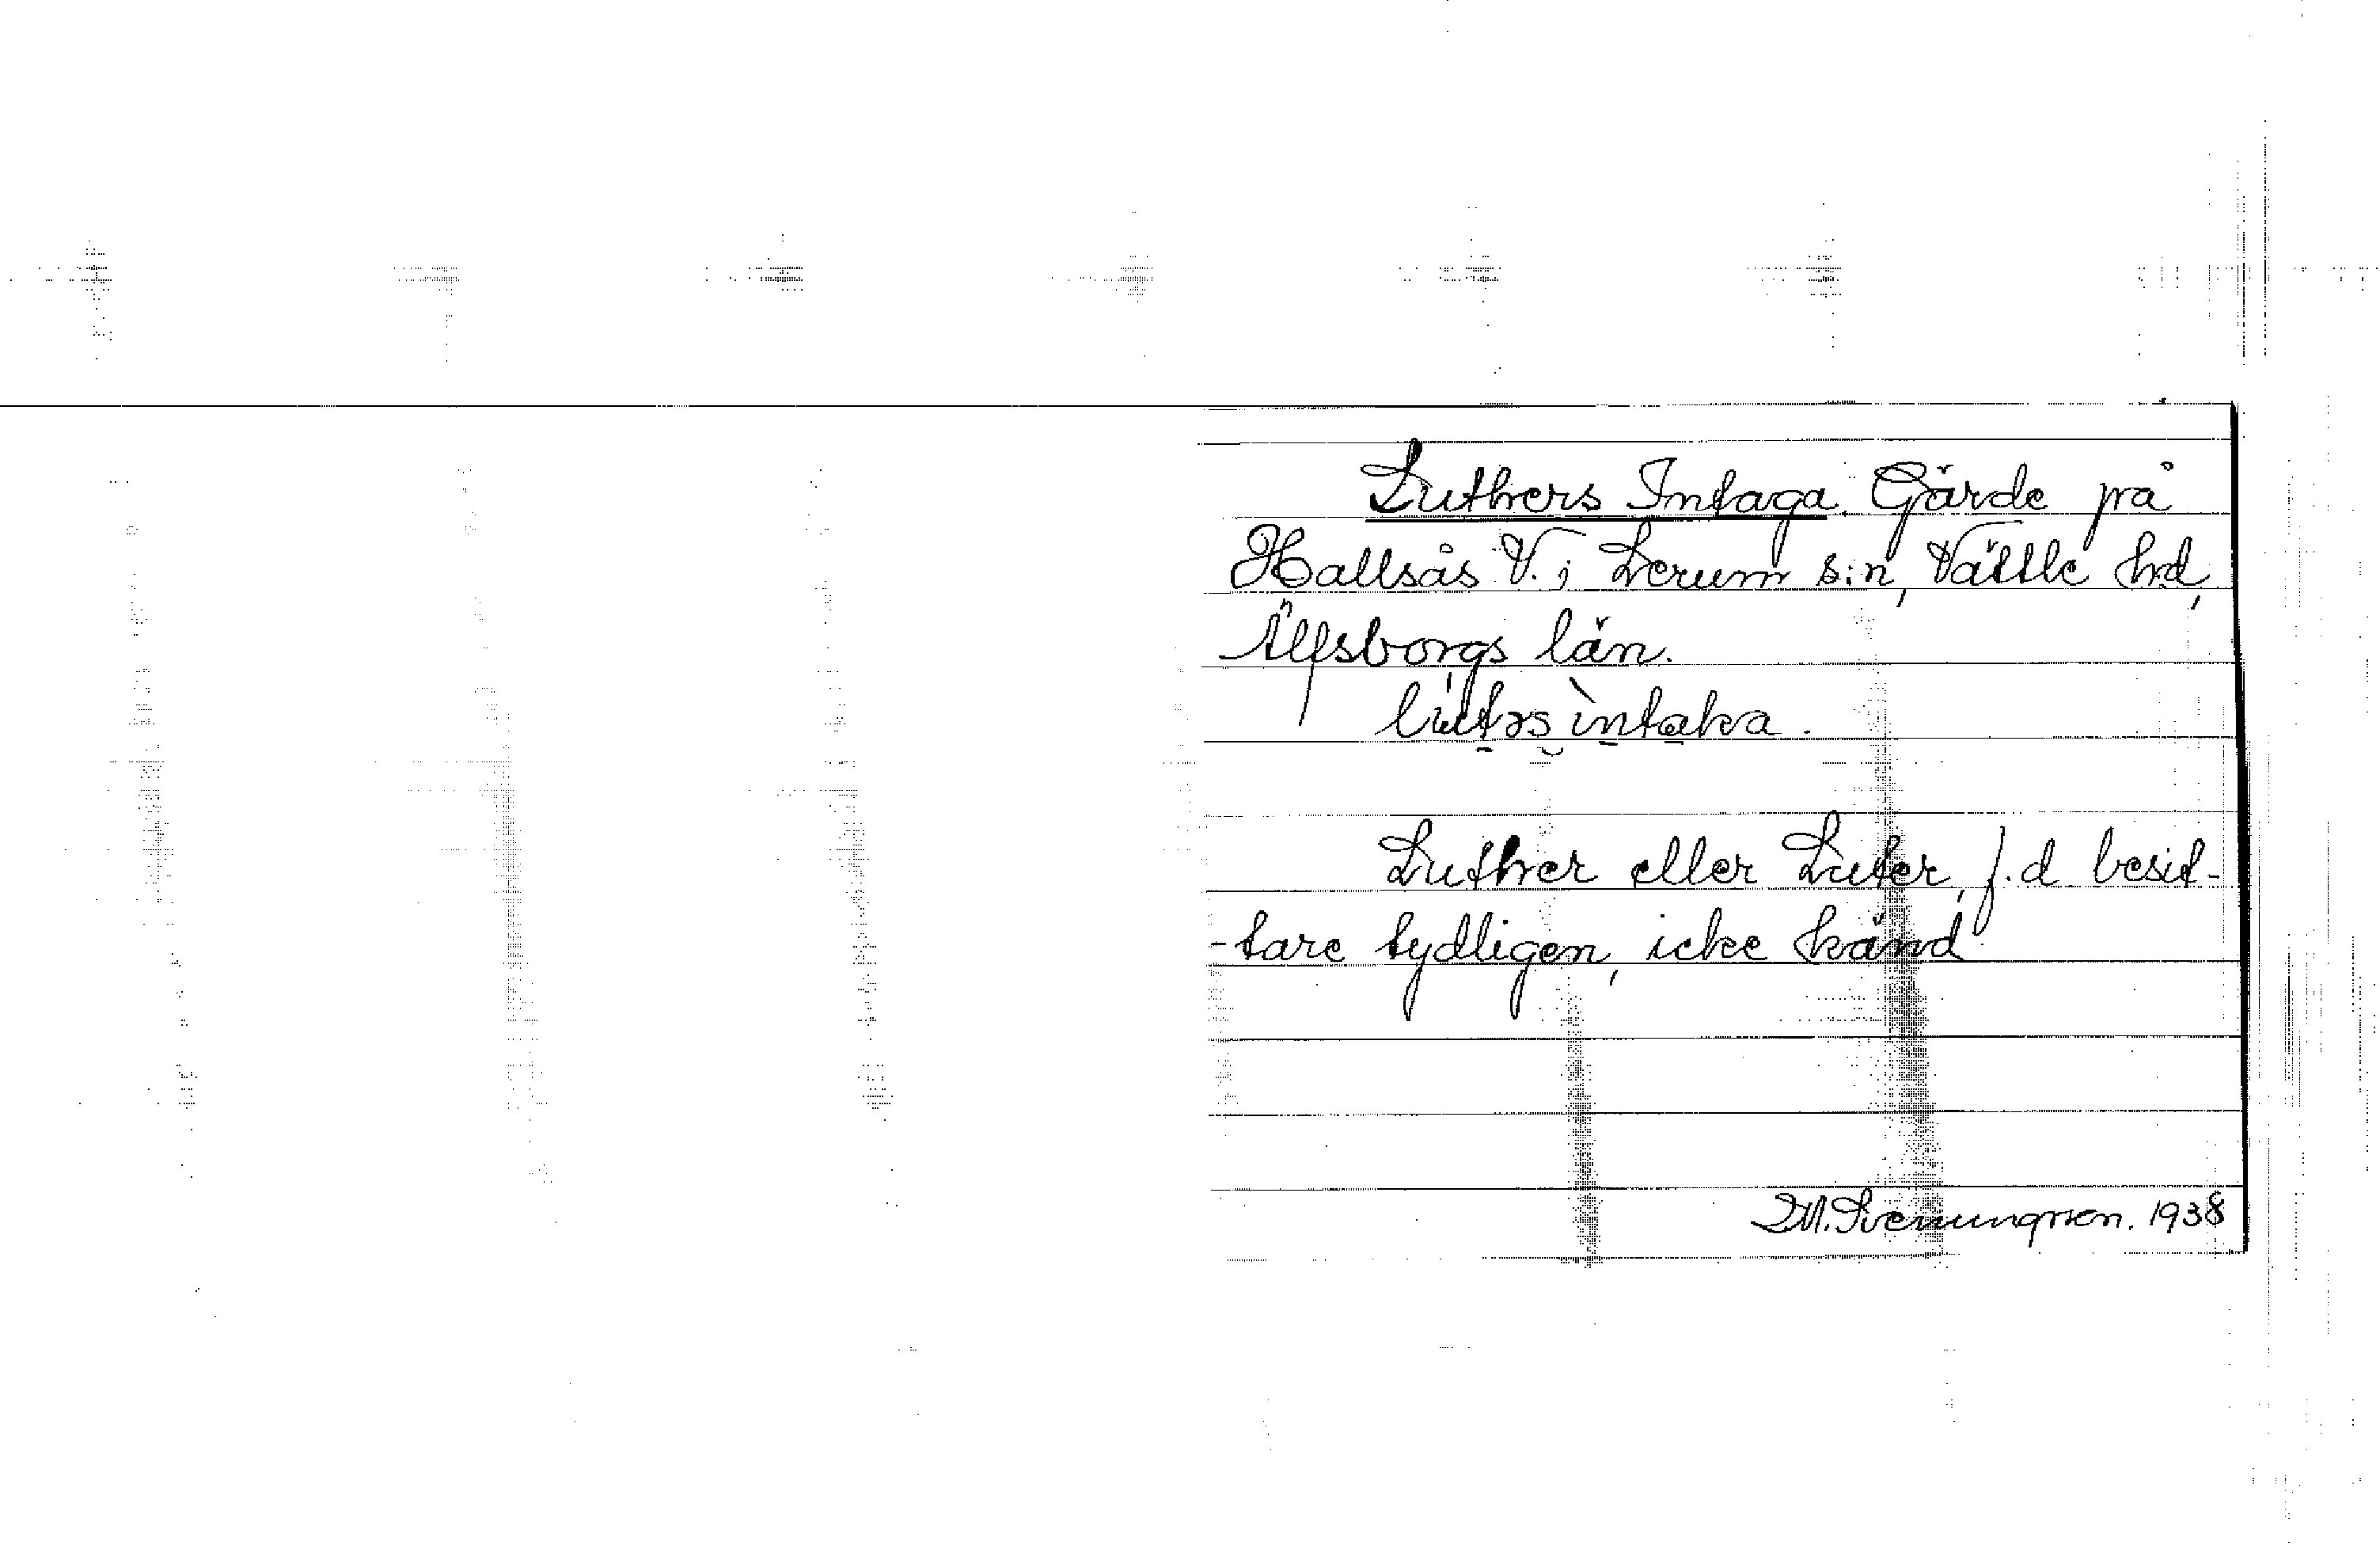 Luthers Intaga. Gärde på
Hallsås V. i Lerum s:n, Vättle hd,
Älfsborgs län.
lutəs intaka.
Luther eller Luter, f.d besit-
-tare tydligen, icke känd
M. Svenungsson. 1938